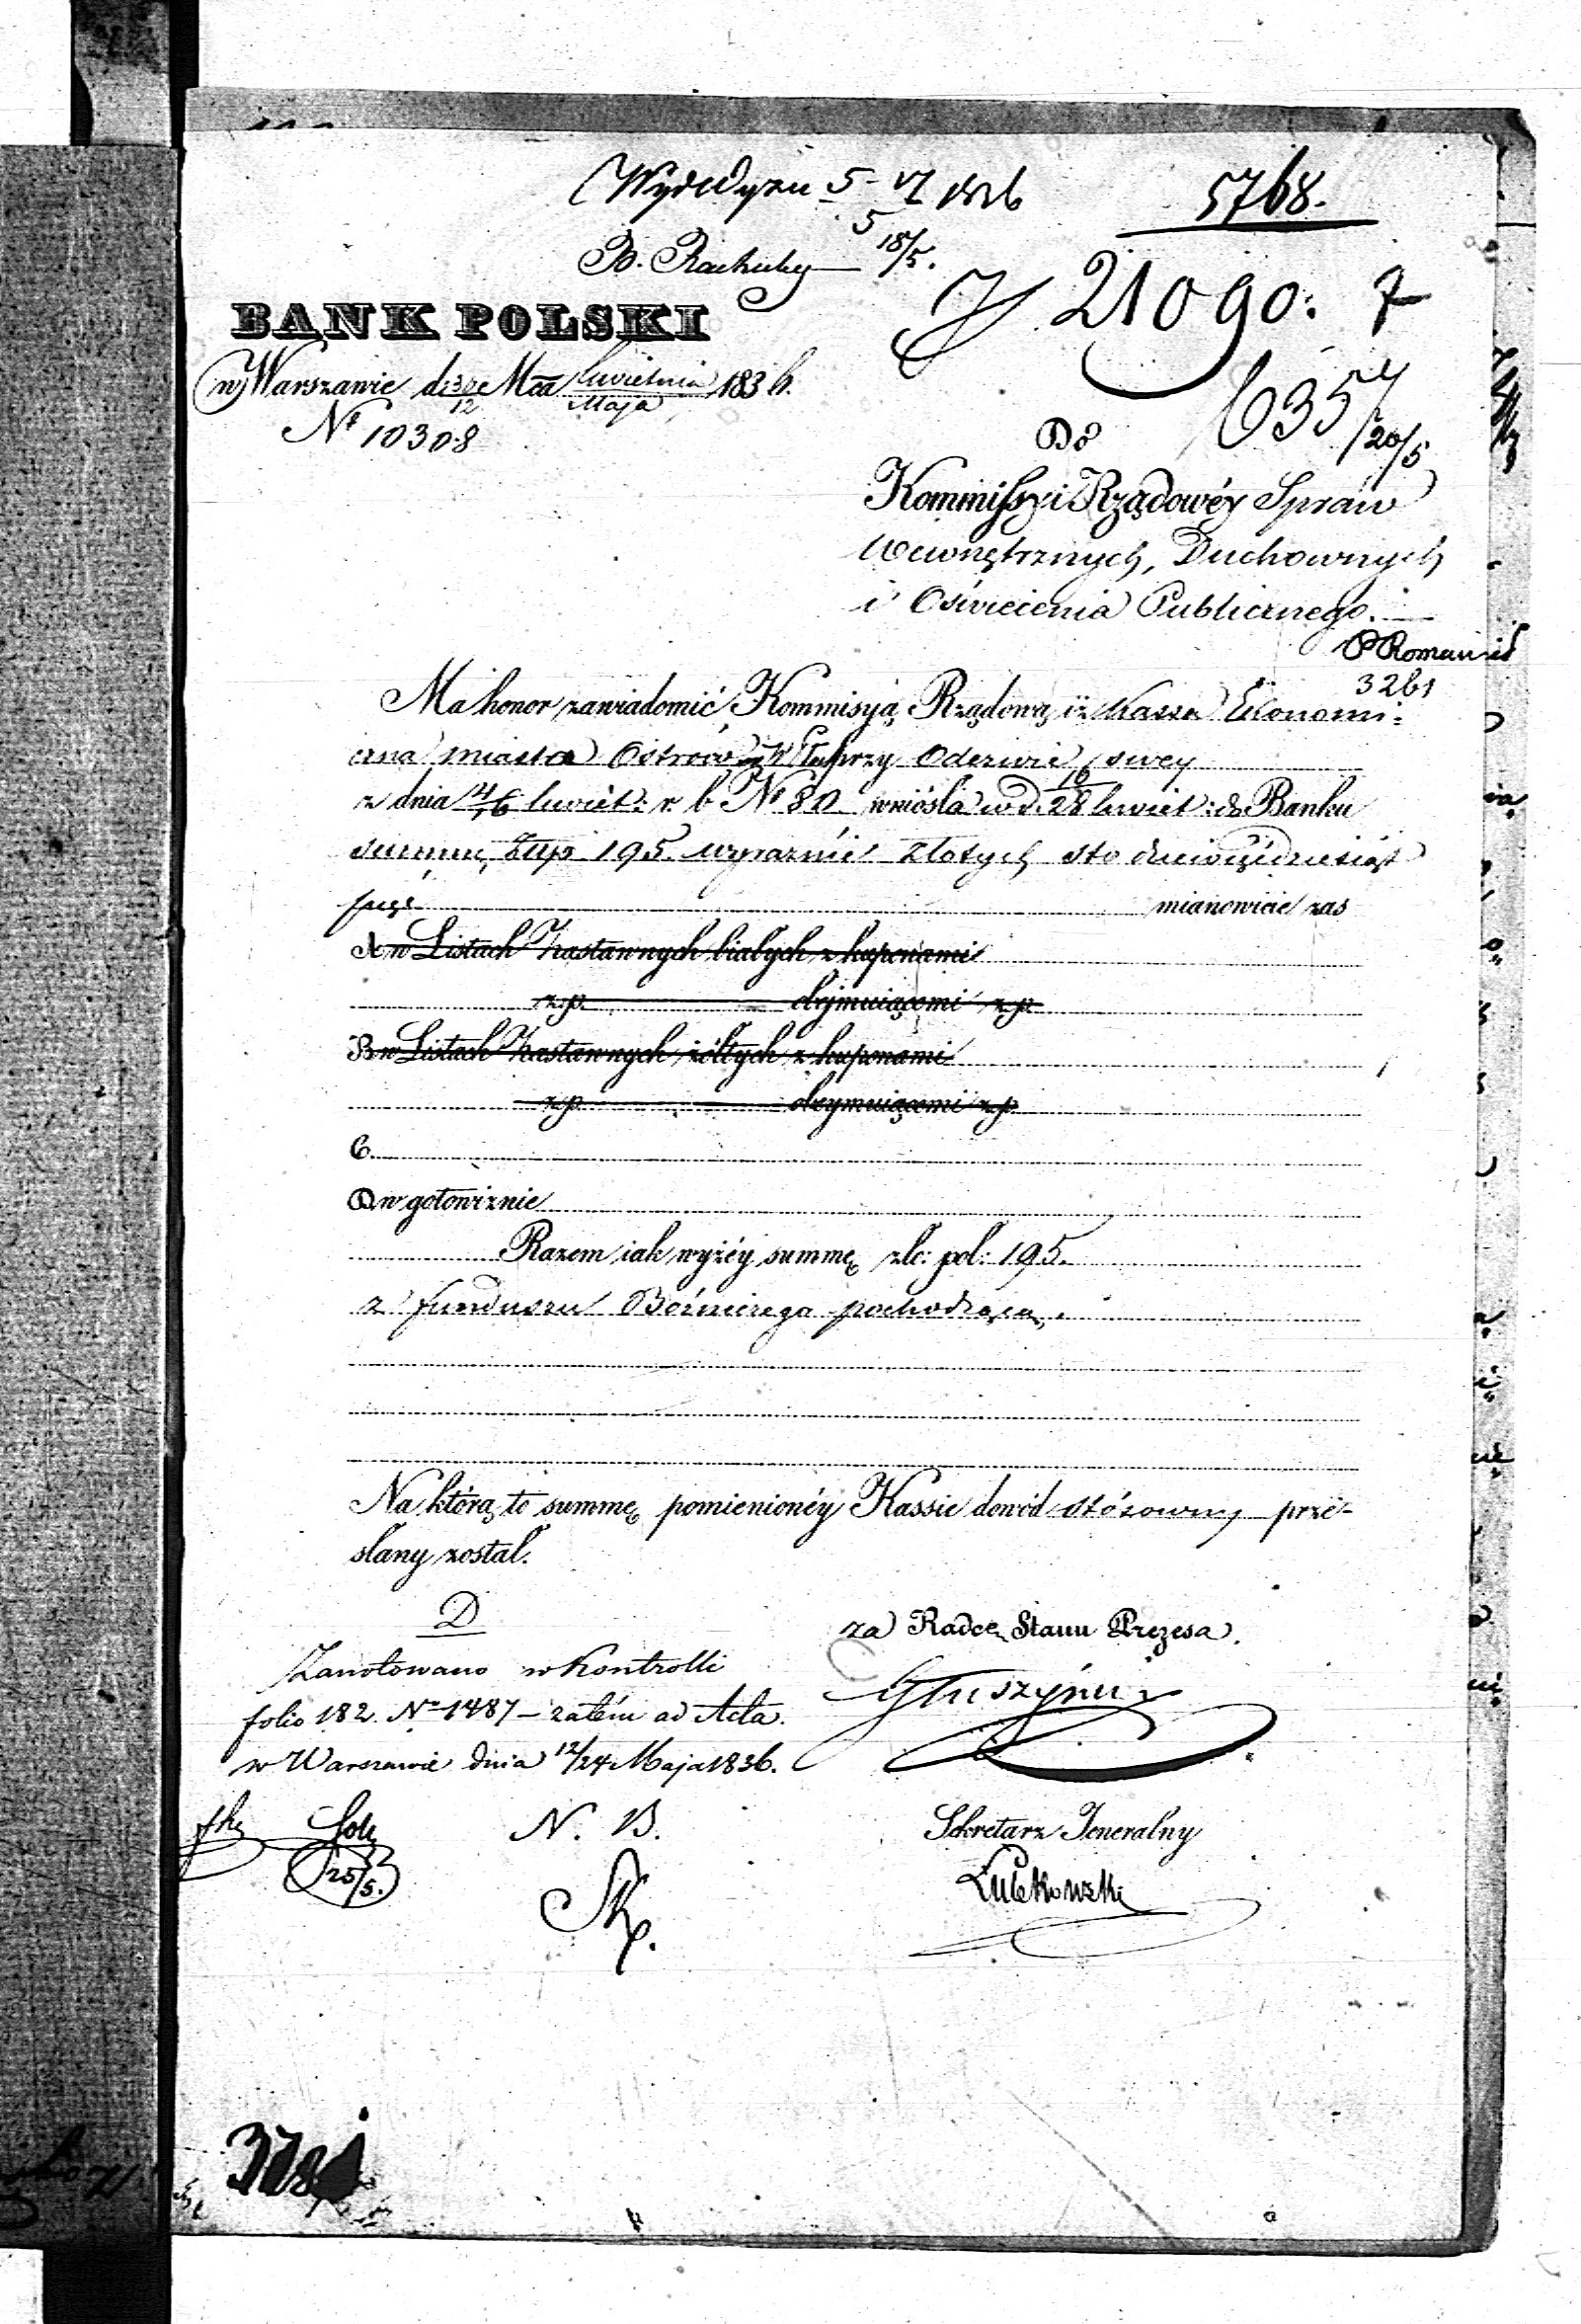 5768.
18/5.
21090: 7
BANK POLSKI
w Warszawie d. 30/12 Mca Kwietnia/Maja 1836.
№ 10308
6357/20/5
Do
Kommissyi Rządowéy Spraw
Wewnętrznych, Duchownych
i Oświecenia Publicznego.
3261
Ma honor zawiadomić Kommisyją Rządową iż Kassa Ekonomi=
czna miasta Ostrowa przy Odezwie swey
z dnia 4/16 kwiet: r. b № 80 wniosła w d. 16/28 kwiet: do Banku
summę Złp 195. wyraźnie Złotych sto dziewięćdziesiąt
pięć mianowicie zas
A w Listach Zastawnych białych z kuponami
z.p. obejmuiącemi z.p.
B w Listach Zastawnych żółtych z kuponami
z.p. obeymuiącemi z.p.
C.
D w gotowiznie
Razem iak wyżéy summę zło: pol: 195.
z funduszu Bożniczego pochodzącą.
Na którą to summę pomienionéy Kassie dowód stósowny prze-
słany został.
D
Zanotowano w Kontrolli
folio 182. № 1487 – zatém ad Acta.
w Warszawie dnia 12/24 Maja 1836.
25/5.
N. B.
za Radcę Stanu Prezesa.
Sekretarz Jeneralny